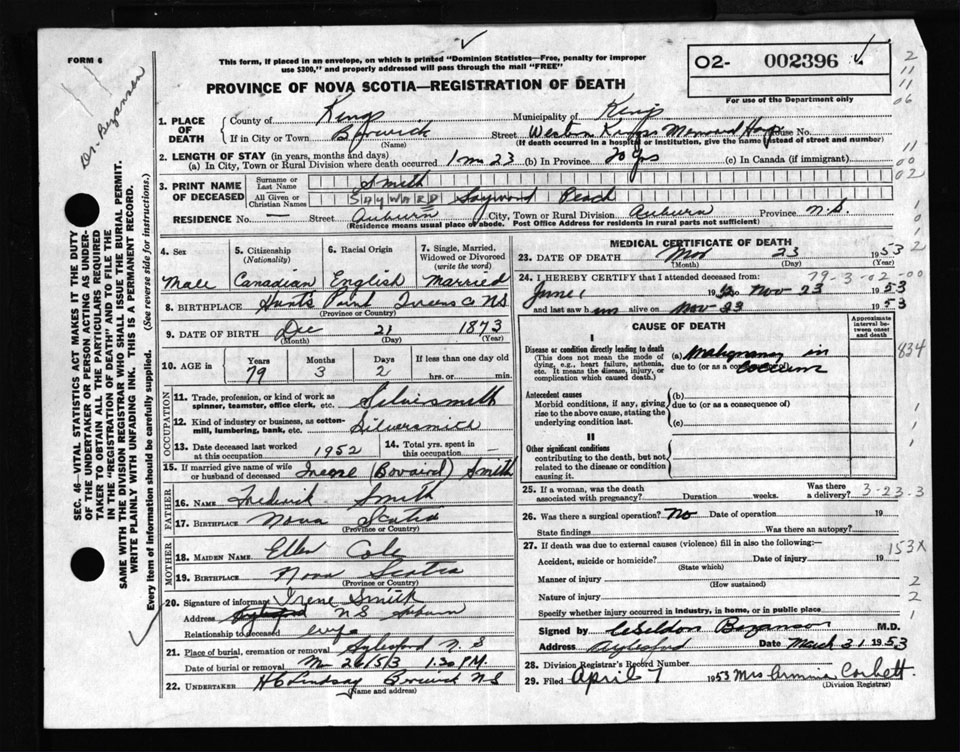 FORM 6
This form, if placed in an envelope, on which is printed "Dominion Statistics—Free, penalty for improper
use $300," and properly addressed will pass through the mail "FREE"
O2- 002396
For use of the Department only
PROVINCE OF NOVA SCOTIA—REGISTRATION OF DEATH
Dr. Bezanson
1. PLACE OF DEATH
County of Kings Municipality of Kings
If in City or Town Berwick Street Western Kings Memorial Hosp House No.
(Name) (If death occurred in a hospital or institution, give the name instead of street and number)
2. LENGTH OF STAY (in years, months and days)
(a) In City, Town or Rural Division where death occurred 1 m 23 (b) In Province 20 yrs (c) In Canada (if immigrant)
3. PRINT NAME OF DECEASED
Surname or Last Name Smith
All Given or Christian Names SAYWARD Saywood Peach
RESIDENCE No. — Street Auburn City, Town or Rural Division Auburn Province N.S.
(Residence means usual place of abode. Post Office Address for residents in rural parts not sufficient)
4. Sex Male
5. Citizenship (Nationality) Canadian
6. Racial Origin English
7. Single, Married, Widowed or Divorced (write the word) Married
8. BIRTHPLACE Hunts Point Queens Co NS
(Province or Country)
9. DATE OF BIRTH Dec 21 1873
(Month) (Day) (Year)
10. AGE in Years 79 Months 3 Days 2 If less than one day old hrs. or min.
OCCUPATION
11. Trade, profession, or kind of work as spinner, teamster, office clerk, etc. Silversmith
12. Kind of industry or business, as cotten-mill, lumbering, bank, etc. Silversmith
13. Date deceased last worked at this occupation 1952
14. Total yrs. spent in this occupation —
15. If married give name of wife or husband of deceased Irene (Bovaird) Smith
FATHER
16. NAME Frederick Smith
17. BIRTHPLACE Nova Scotia
(Province or Country)
MOTHER
18. MAIDEN NAME Ellen Cole
19. BIRTHPLACE Nova Scotia
(Province or Country)
20. Signature of informant Irene Smith
Address NS Auburn
Relationship to deceased wife
21. Place of burial, cremation or removal Aylesford N S
Date of burial or removal 26/5/3 1.30 PM.
22. UNDERTAKER H C Lindsay Berwick NS
(Name and address)
MEDICAL CERTIFICATE OF DEATH
23. DATE OF DEATH Mar 23 1953
(Month) (Day) (Year)
79-3-02-00
24. I HEREBY CERTIFY that I attended deceased from:
June 1953 to Nov 23 1953
and last saw him alive on Nov 23 1953
CAUSE OF DEATH
Approximate interval between onset and death
I
Disease or condition directly leading to death
(This does not mean the mode of dying, e.g., heart failure, asthenia, etc. It means the disease, injury, or complication which caused death.)
(a) Malignancy in coecum
due to (or as a consequence of)
834
Antecedent causes
Morbid conditions, if any, giving rise to the above cause, stating the underlying condition last.
(b)
due to (or as a consequence of)
(c)
II
Other significant conditions
contributing to the death, but not related to the disease or condition causing it.
25. If a woman, was the death associated with pregnancy? Duration weeks. Was there a delivery?
3-23-3
26. Was there a surgical operation? No Date of operation 19
State findings Was there an autopsy?
27. If death was due to external causes (violence) fill in also the following:—
153X
Accident, suicide or homicide? Date of injury 19
(State which)
Manner of injury
(How sustained)
Nature of injury
Specify whether injury occurred in industry, in home, or in public place
Signed by Bezanson M.D.
Address Aylesford Date March 31 1953
28. Division Registrar's Record Number
29. Filed April 7 1953 Mrs Armina Corbett.
(Division Registrar)
SEC. 46—VITAL STATISTICS ACT MAKES IT THE DUTY
OF THE UNDERTAKER OR PERSON ACTING AS UNDER-
TAKER TO OBTAIN ALL THE PARTICULARS REQUIRED
IN THE "REGISTRATION OF DEATH" AND TO FILE THE
SAME WITH THE DIVISION REGISTRAR WHO SHALL ISSUE THE BURIAL PERMIT.
WRITE PLAINLY WITH UNFADING INK. THIS IS A PERMANENT RECORD.
Every item of information should be carefully supplied. (See reverse side for instructions.)
2
11
11
06
11
00
02
1
2
1
1
1
2
2
1